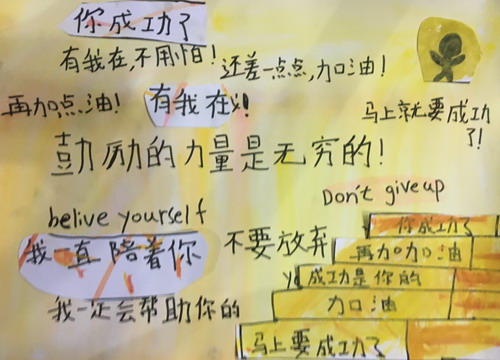 你成功了
有我在,不用怕!
还差一点点,加油!
再加点油!
有我在!
马上就要成功了!
鼓励的力量是无穷的!
Don't give up
belive yourself
我一直陪着你
不要放弃
我一定会帮助你的
你成功了
再加加油
成功是你的
加油
马上要成功了